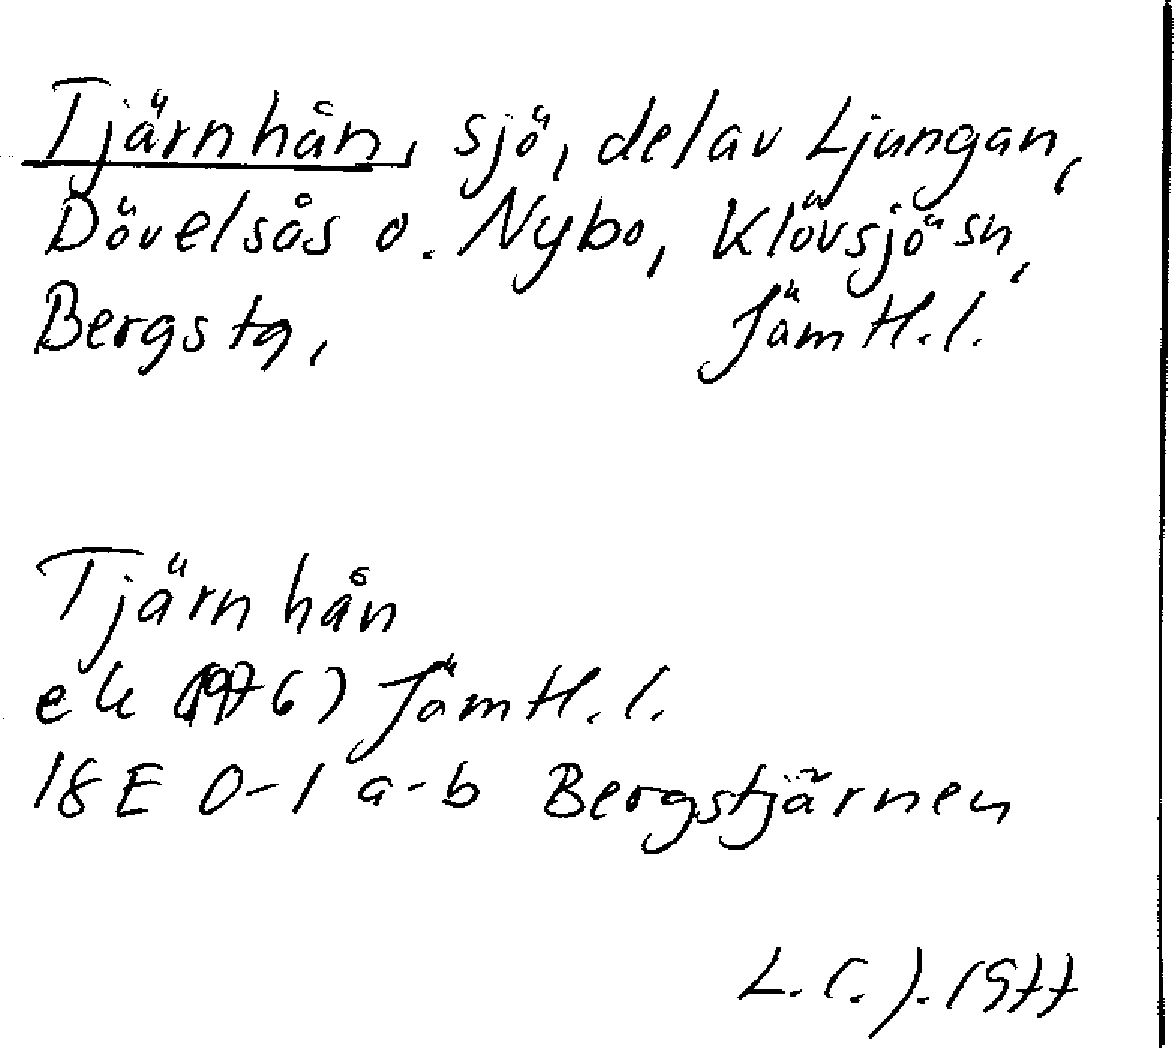 Tjärnhån, sjö, del av Ljungan,
Dövelsås o. Nybo, Klövsjö sn,
Bergs tg, Jämtl. l.
Tjärnhån
ek (1976) Jämtl. l.
18E 0-1 a-b Bergstjärnen
L. C. J. 1977